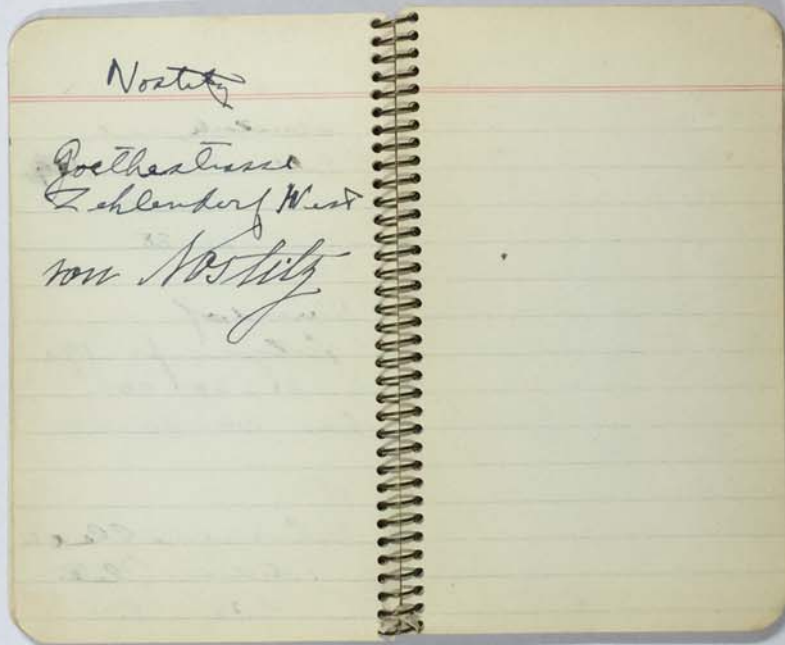 Nostitz
Goethestrasse
Zehlendorf West
von Nostitz